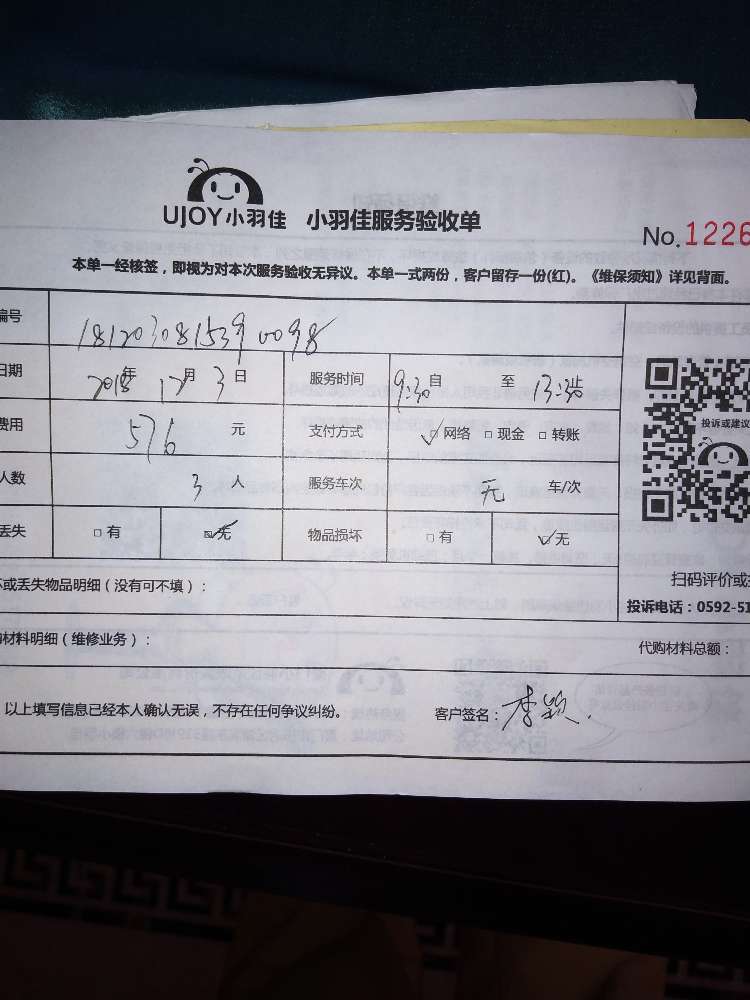 UJOY小羽佳 小羽佳服务验收单
No.1226
本单一经核签，即视为对本次服务验收无异议。本单一式两份，客户留存一份(红)。《维保须知》详见背面。
编号 1812030815390098
日期 2018年 12月 3日 服务时间 9:30自 至 13:30止
费用 576 元 支付方式 ☑网络 □现金 □转账
人数 3 人 服务车次 无 车/次
丢失 □有 ☑无 物品损坏 □有 ☑无
投诉或建议
坏或丢失物品明细（没有可不填）：
扫码评价或
投诉电话：0592-51
购材料明细（维修业务）：
代购材料总额：
以上填写信息已经本人确认无误，不存在任何争议纠纷。 客户签名：李颖